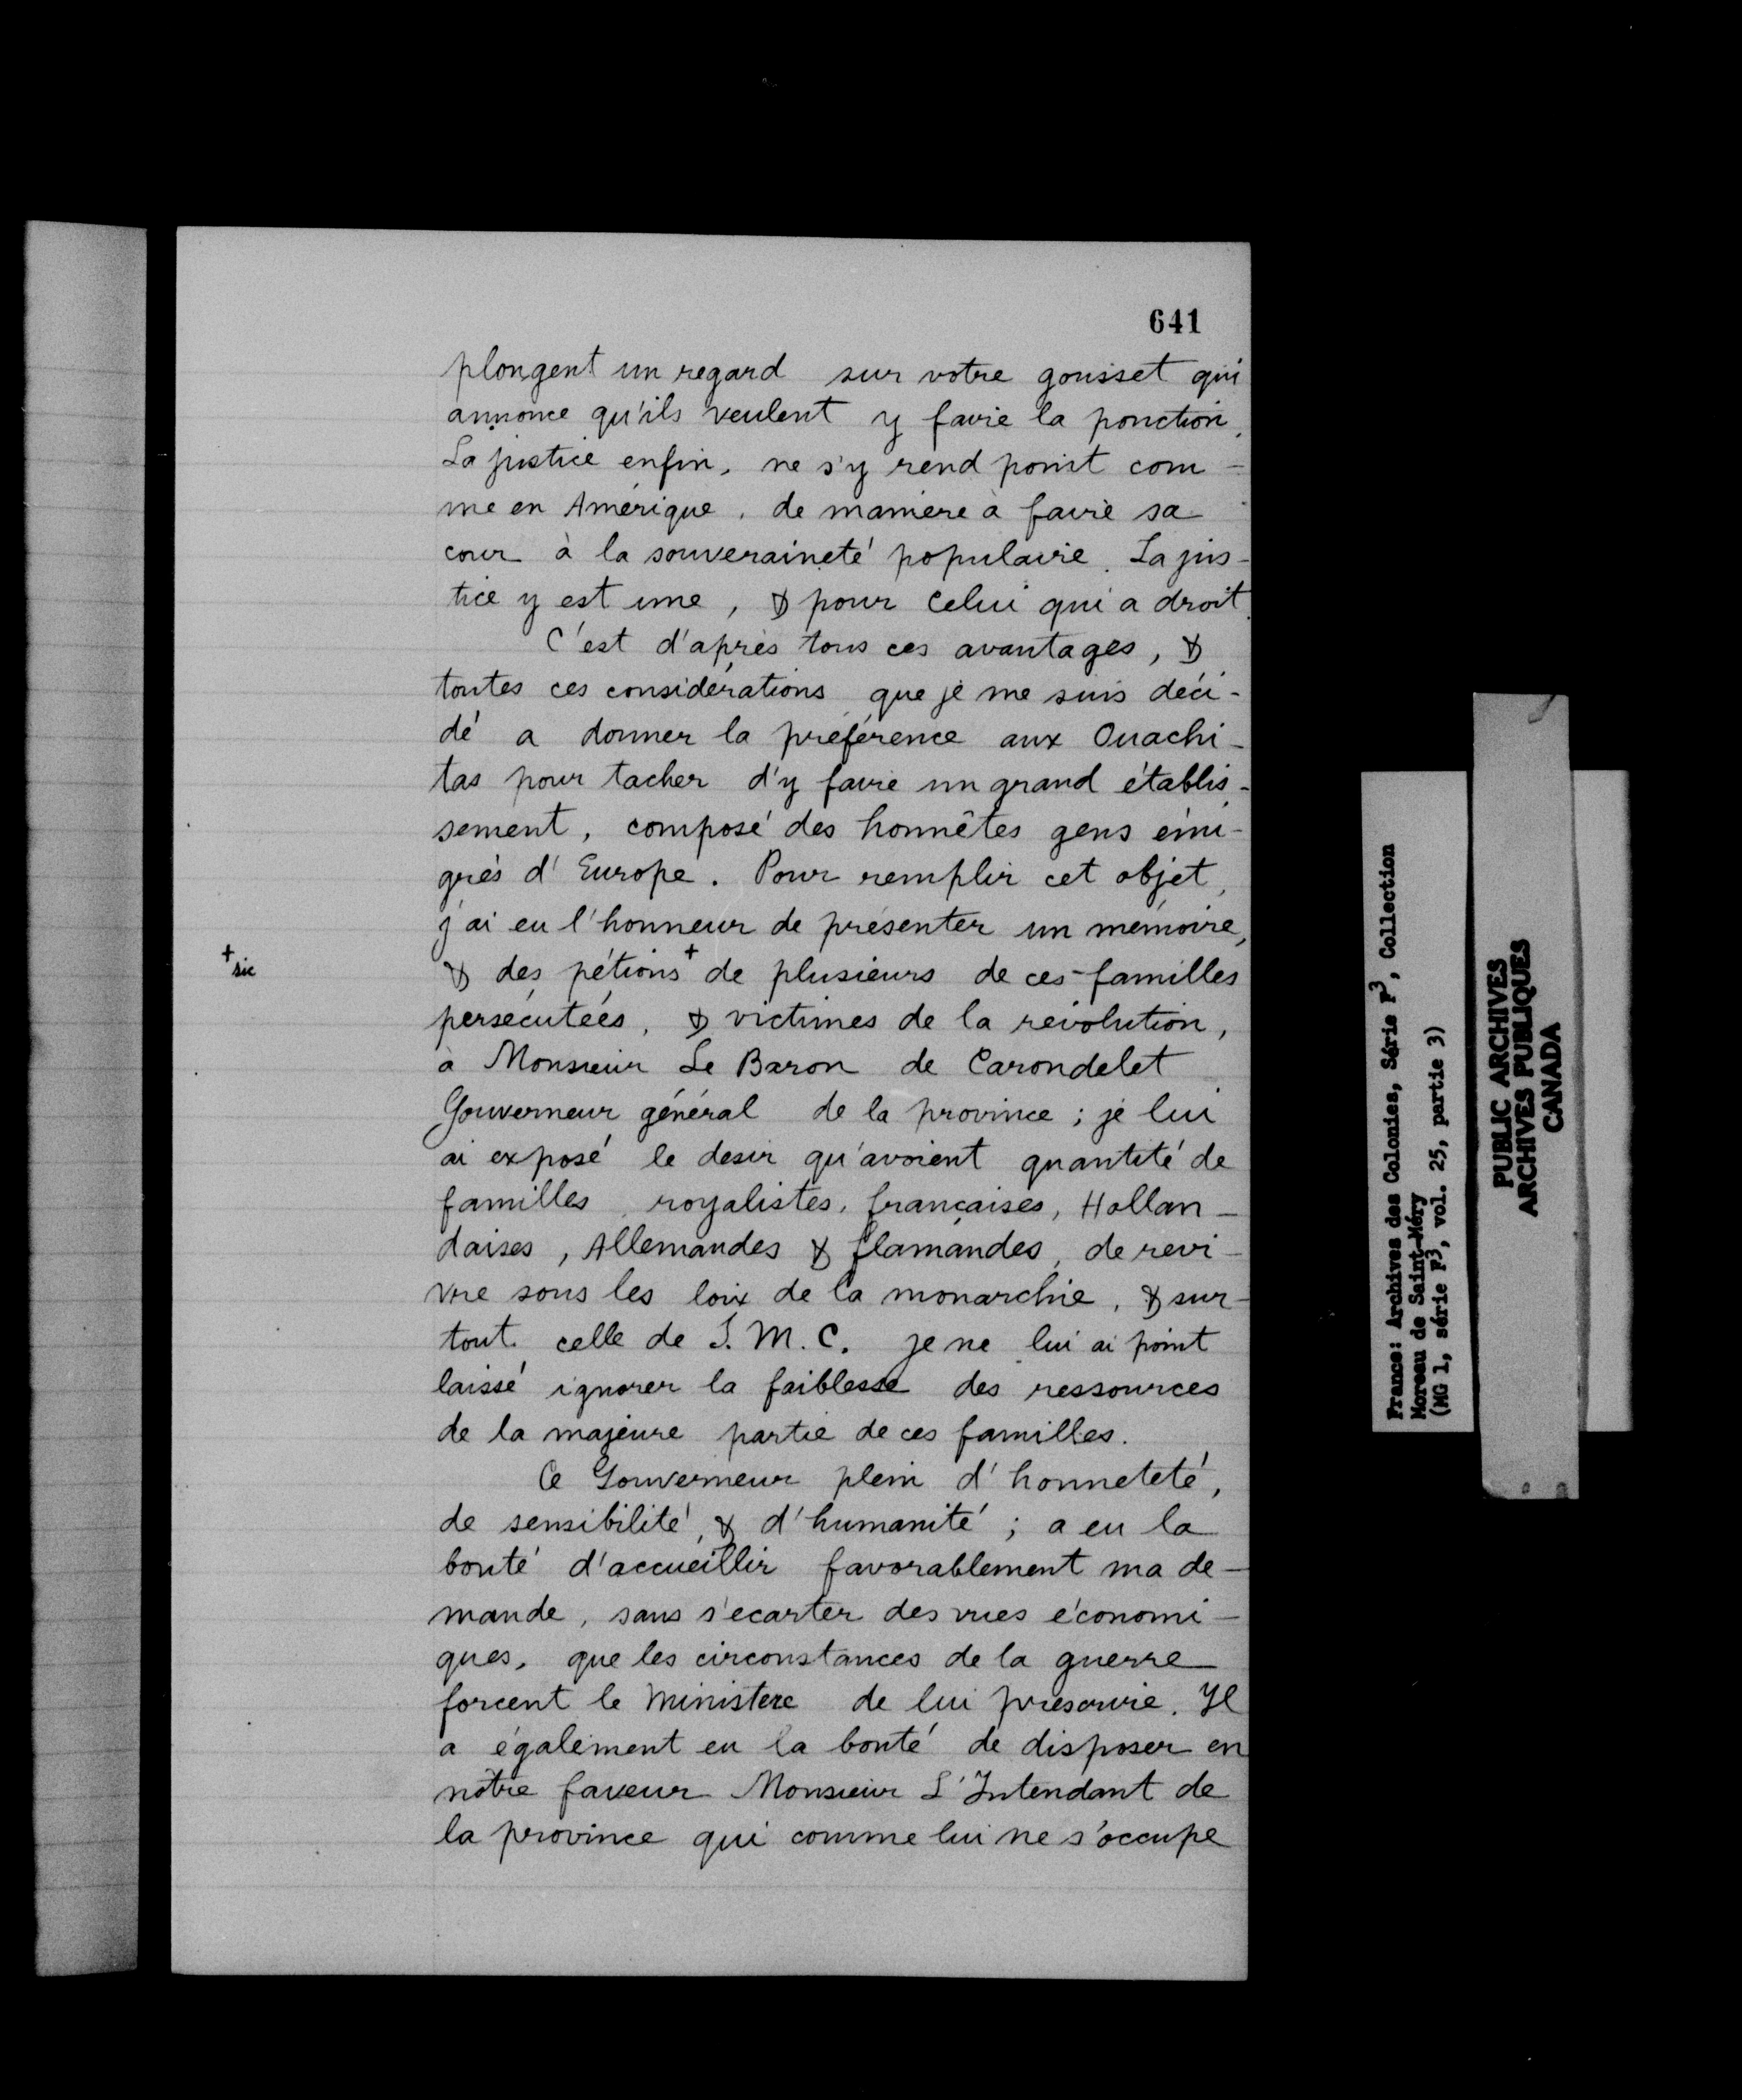 641
plongent un regard sur votre gousset qui
annonce qu'ils veulent y faire la ponction.
La justice enfin, ne s'y rend point com-
me en Amérique, de manière à faire sa
cour à la souveraineté populaire. La jus-
tice y est une, & pour celui qui a droit.
C'est d'après tous ces avantages, &
toutes ces considérations que je me suis déci-
dé a donner la préférence aux Ouachi-
tas pour tacher d'y faire un grand établis-
sement, composé des honnêtes gens émi-
grés d'Europe. Pour remplir cet objet,
j'ai eu l'honneur de présenter un mémoire,
+ sic
& des pétions + de plusieurs de ces familles
persécutées, & victimes de la révolution,
à Monsieur Le Baron de Carondelet
Gouverneur général de la province; je lui
ai exposé le desir qu'avoient quantité de
familles royalistes, françaises, Hollan-
daises, Allemandes & flamandes, de revi-
vre sous les loix de la monarchie, & sur-
tout celle de S. M. C. je ne lui ai point
laissé ignorer la faiblesse des ressources
de la majeure partie de ces familles.
Ce Gouverneur plein d'honneteté,
de sensibilité, & d'humanité; a eu la
bonté d'accueillir favorablement ma de-
mande, sans s'ecarter des vues économi-
ques, que les circonstances de la guerre
forcent le ministere de lui prescrire. Il
a également eu la bonté de disposer en
nôtre faveur Monsieur L'Intendant de
la province qui comme lui ne s'occupe
France: Archives des Colonies, Série F3, Collection
Moreau de Saint-Méry
(MG 1, série F3, vol. 25, partie 3)
PUBLIC ARCHIVES
ARCHIVES PUBLIQUES
CANADA